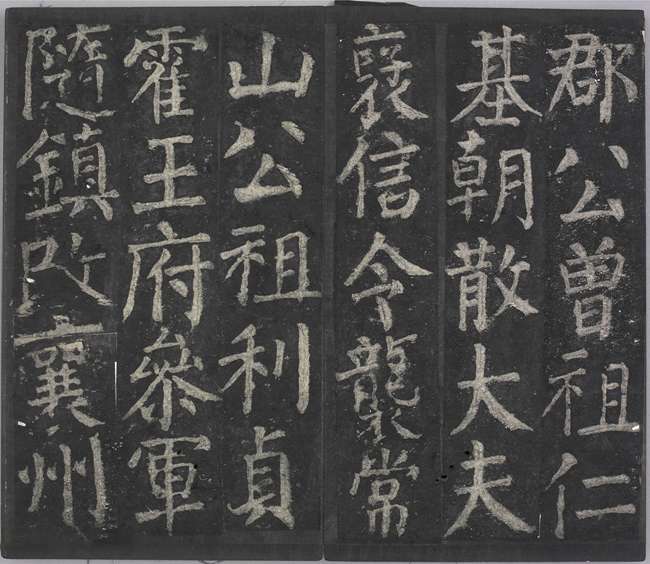 郡公曾祖仁
基朝散大夫
襃信令襲常
山公祖利貞
霍王府參軍
隨鎮改襄州